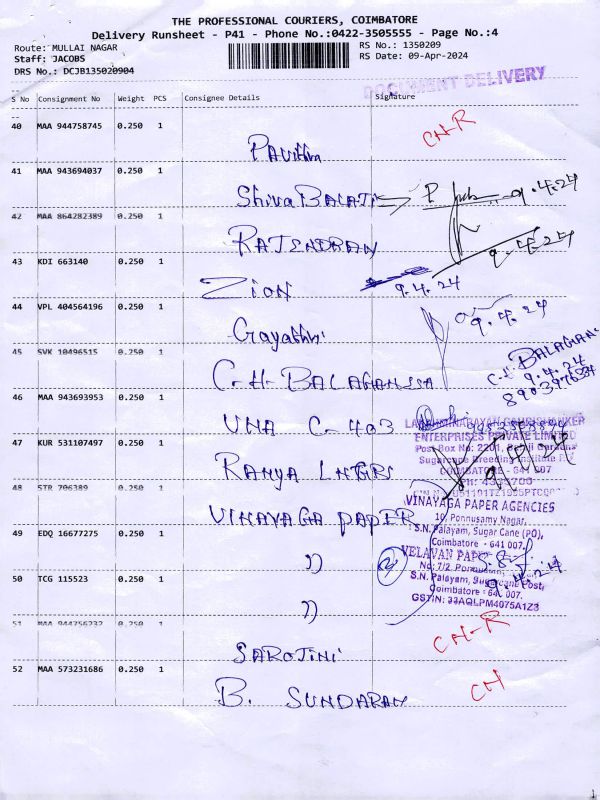 THE PROFESSIONAL COURIERS, COIMBATORE
Delivery Runsheet - P41 - Phone No.:0422-3505555 - Page No.:4
Route: MULLAI NAGAR
RS No.: 1350209
Staff: JACOBS
RS Date: 09-Apr-2024
DRS No.: DCJB135020904
DOCUMENT DELIVERY
S No Consignment No Weight PCS Consignee Details Signature
40 MAA 944758745 0.250 1
CN-R
Pavithra
41 MAA 943694037 0.250 1
Shiva BALAJI
9.4.24
42 MAA 864282389 0.250 1
RAJENDRAN
9.4.24
43 KDI 663140 0.250 1
ZION
9.4.24
44 VPL 404564196 0.250 1
9.4.24
Gayathri
45 SVK 10496515 0.250 1
C.H. BALAGANESA
C.H. BALAGAN
9.4.24
8903976534
46 MAA 943693953 0.250 1
UNA C-403
47 KUR 531107497 0.250 1
ENTERPRISES PRIVATE LIMITED
Post Box No: 2201,
Sugarcane Breeding Institute
COIMBATORE - 641 007
RAMYA LNGRS
48 STR 706389 0.250 1
VINAYAGA PAPER
VINAYAGA PAPER AGENCIES
10, Ponnusamy Nagar,
S.N. Palayam, Sugar Cane (PO),
Coimbatore - 641 007.
49 EDQ 16677275 0.250 1
))
VELAVAN PAPER
No: 7/2,
S.N. Palayam, Sugarcane Post,
Coimbatore - 641 007.
GSTIN: 33AQLPM4075A1Z3
9.4.24
50 TCG 115523 0.250 1
))
51 MAA 944756232 0.250 1
CN-R
SAROJINI
52 MAA 573231686 0.250 1
CN
B. SUNDARAM
1